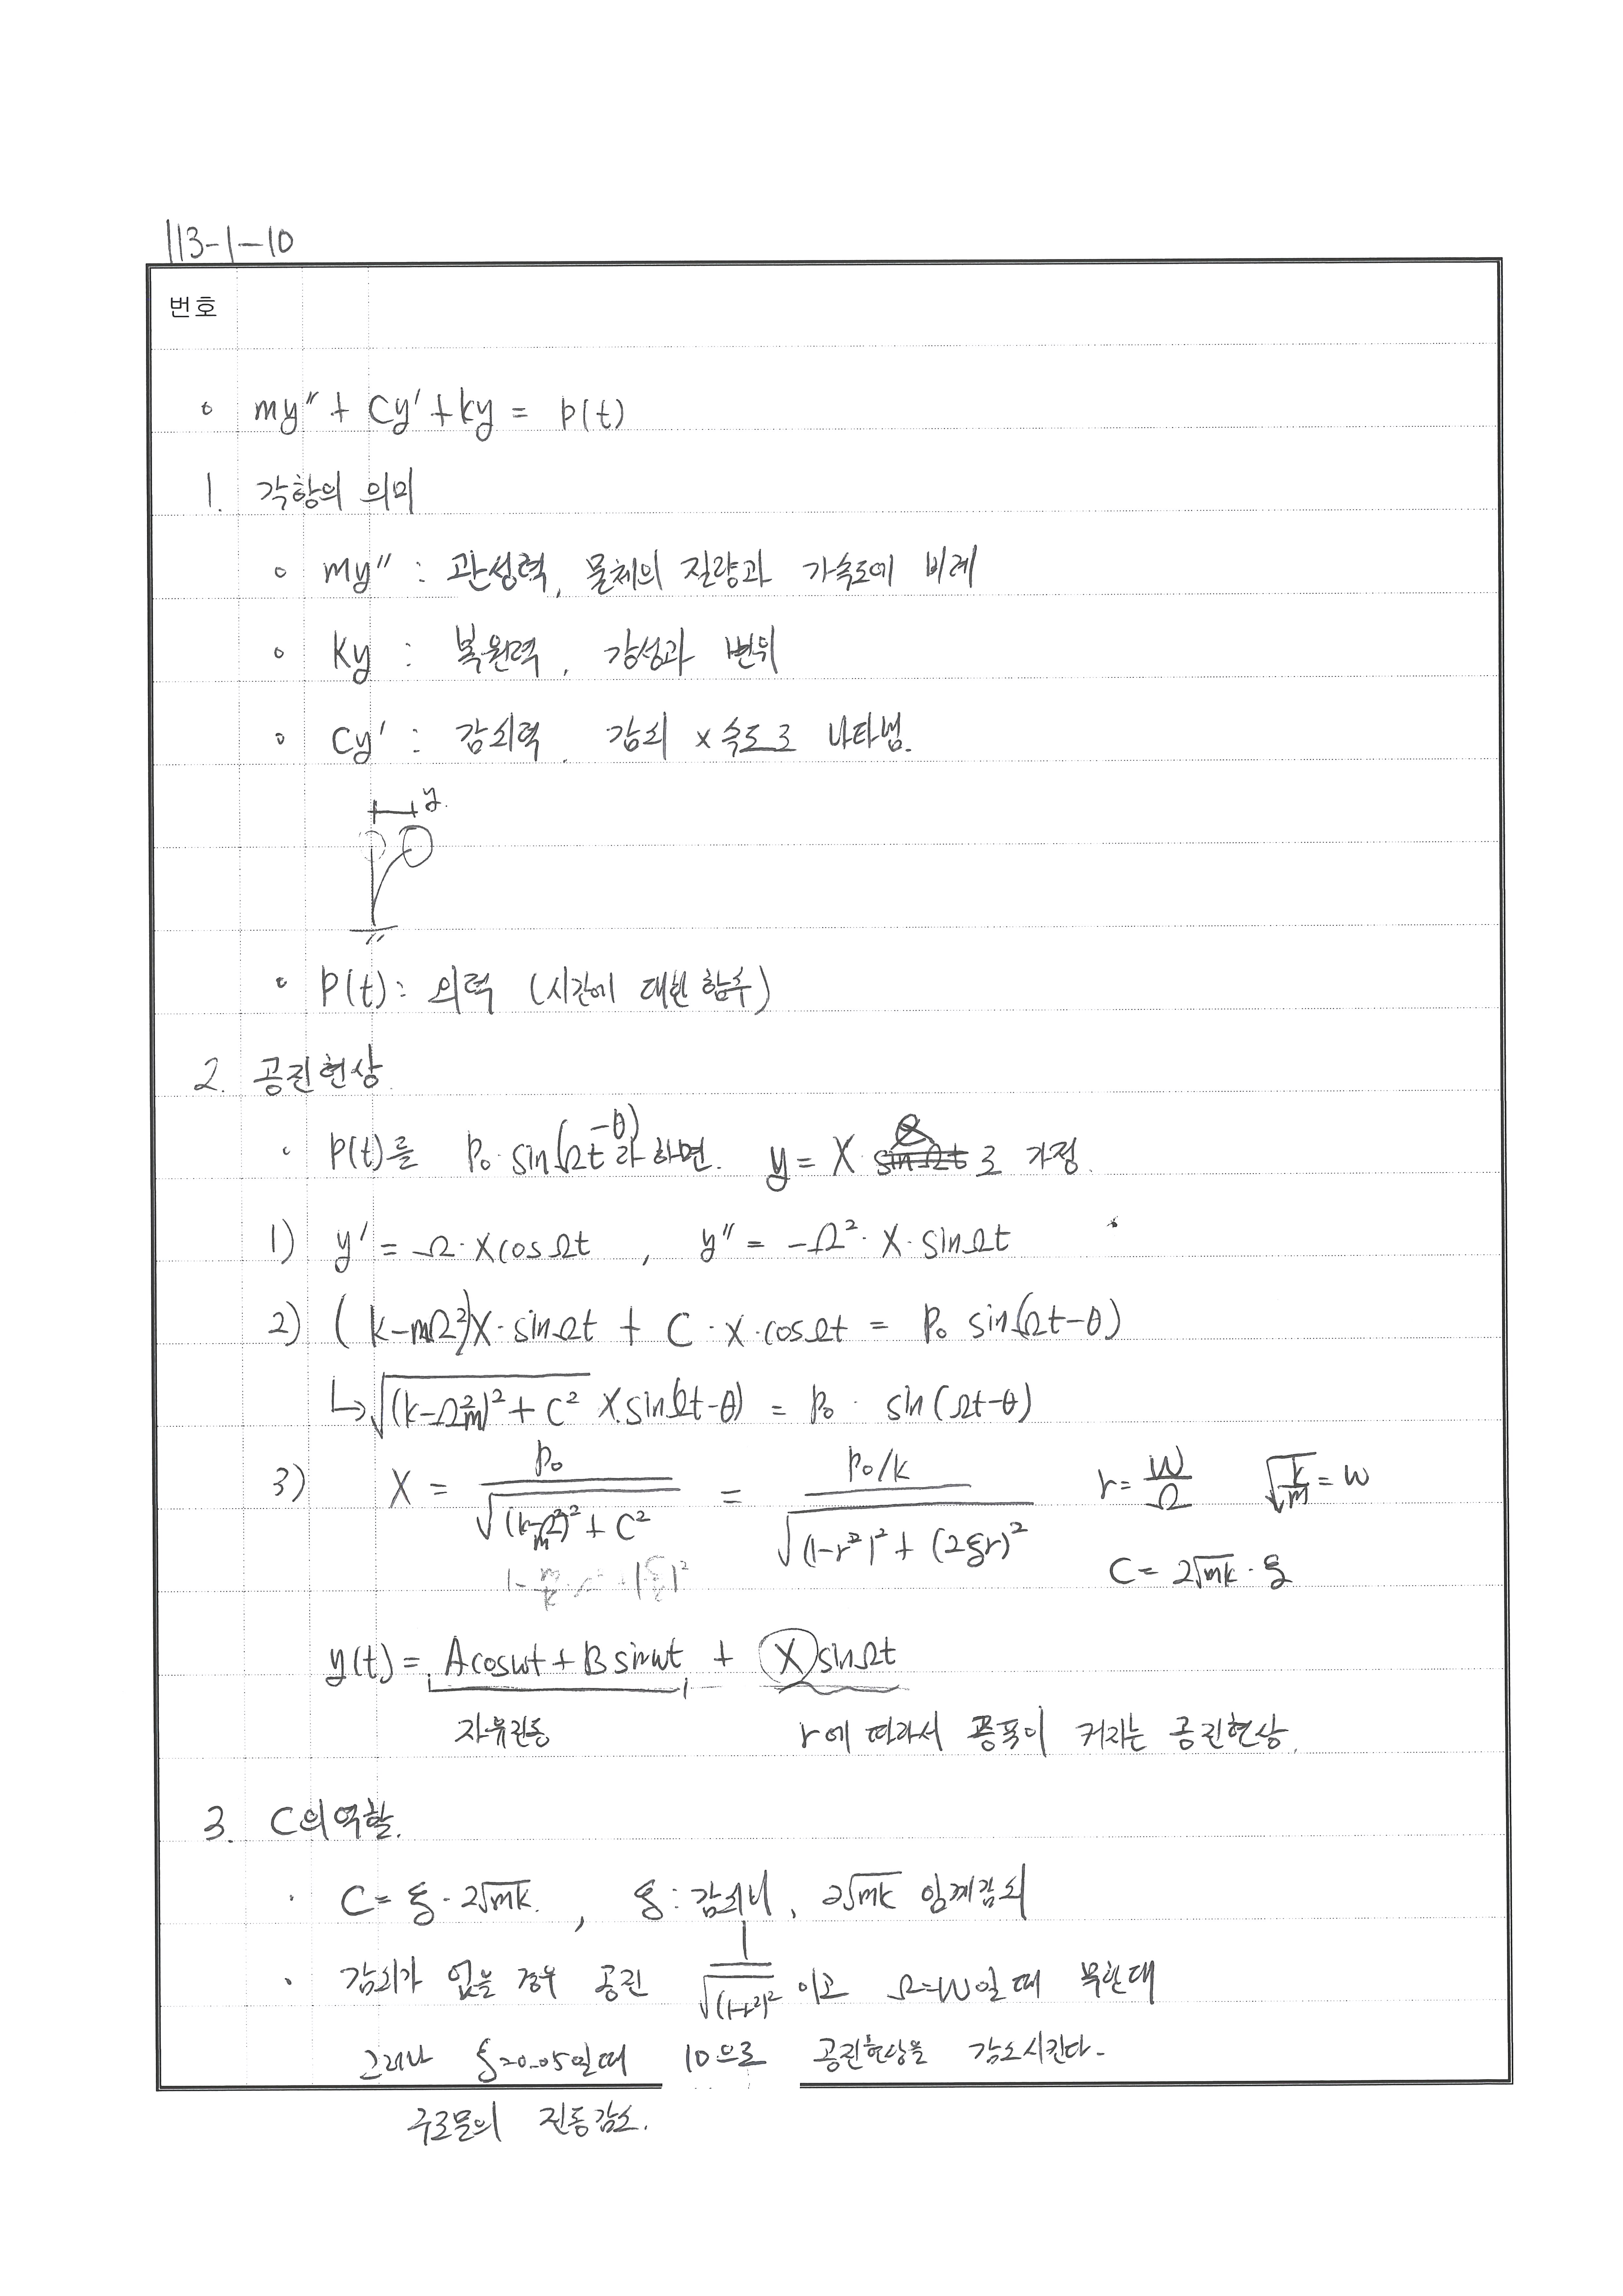 113-1-10
번호
◦ my″ + Cy′ + ky = p(t)
1. 각항의 의미
◦ my″ : 관성력, 물체의 질량과 가속도에 비례
◦ Ky : 복원력, 강성과 변위
◦ Cy′ : 감쇠력, 감쇠 × 속도로 나타냄.
y.
• P(t): 외력 (시간에 대한 함수)
2. 공진현상.
• P(t)를 P₀·sin(Ωt-θ)라 하면. y = X sinΩt로 가정.
1) y′ = Ω·Xcos Ωt , y″ = -Ω²·X·sinΩt
2) (k-mΩ²)X·sinΩt + C·X·cosΩt = P₀ sin(Ωt-θ)
↳ √((k-Ω²m)²+C²) X.sin(Ωt-θ) = P₀· sin(Ωt-θ)
3) X = P₀ / √((k-mΩ²)²+C²) = P₀/k / √((1-r²)²+(2ξr)²) r = W/Ω √(k/m) = W
C = 2√mk·ξ
y(t) = Acoswt + B sinwt + X sinΩt
자유진동 r에 따라서 증폭이 커지는 공진현상.
3. C의 역할.
· C = ξ·2√mk. , ξ : 감쇠비, 2√mk 임계감쇠
· 감쇠가 없을 경우 공진 1/√(1-r²)² 이고 Ω=W일 때 무한대
그러나 ξ=0.05일때 10으로 공진현상을 감소시킨다.
구조물의 진동감소.